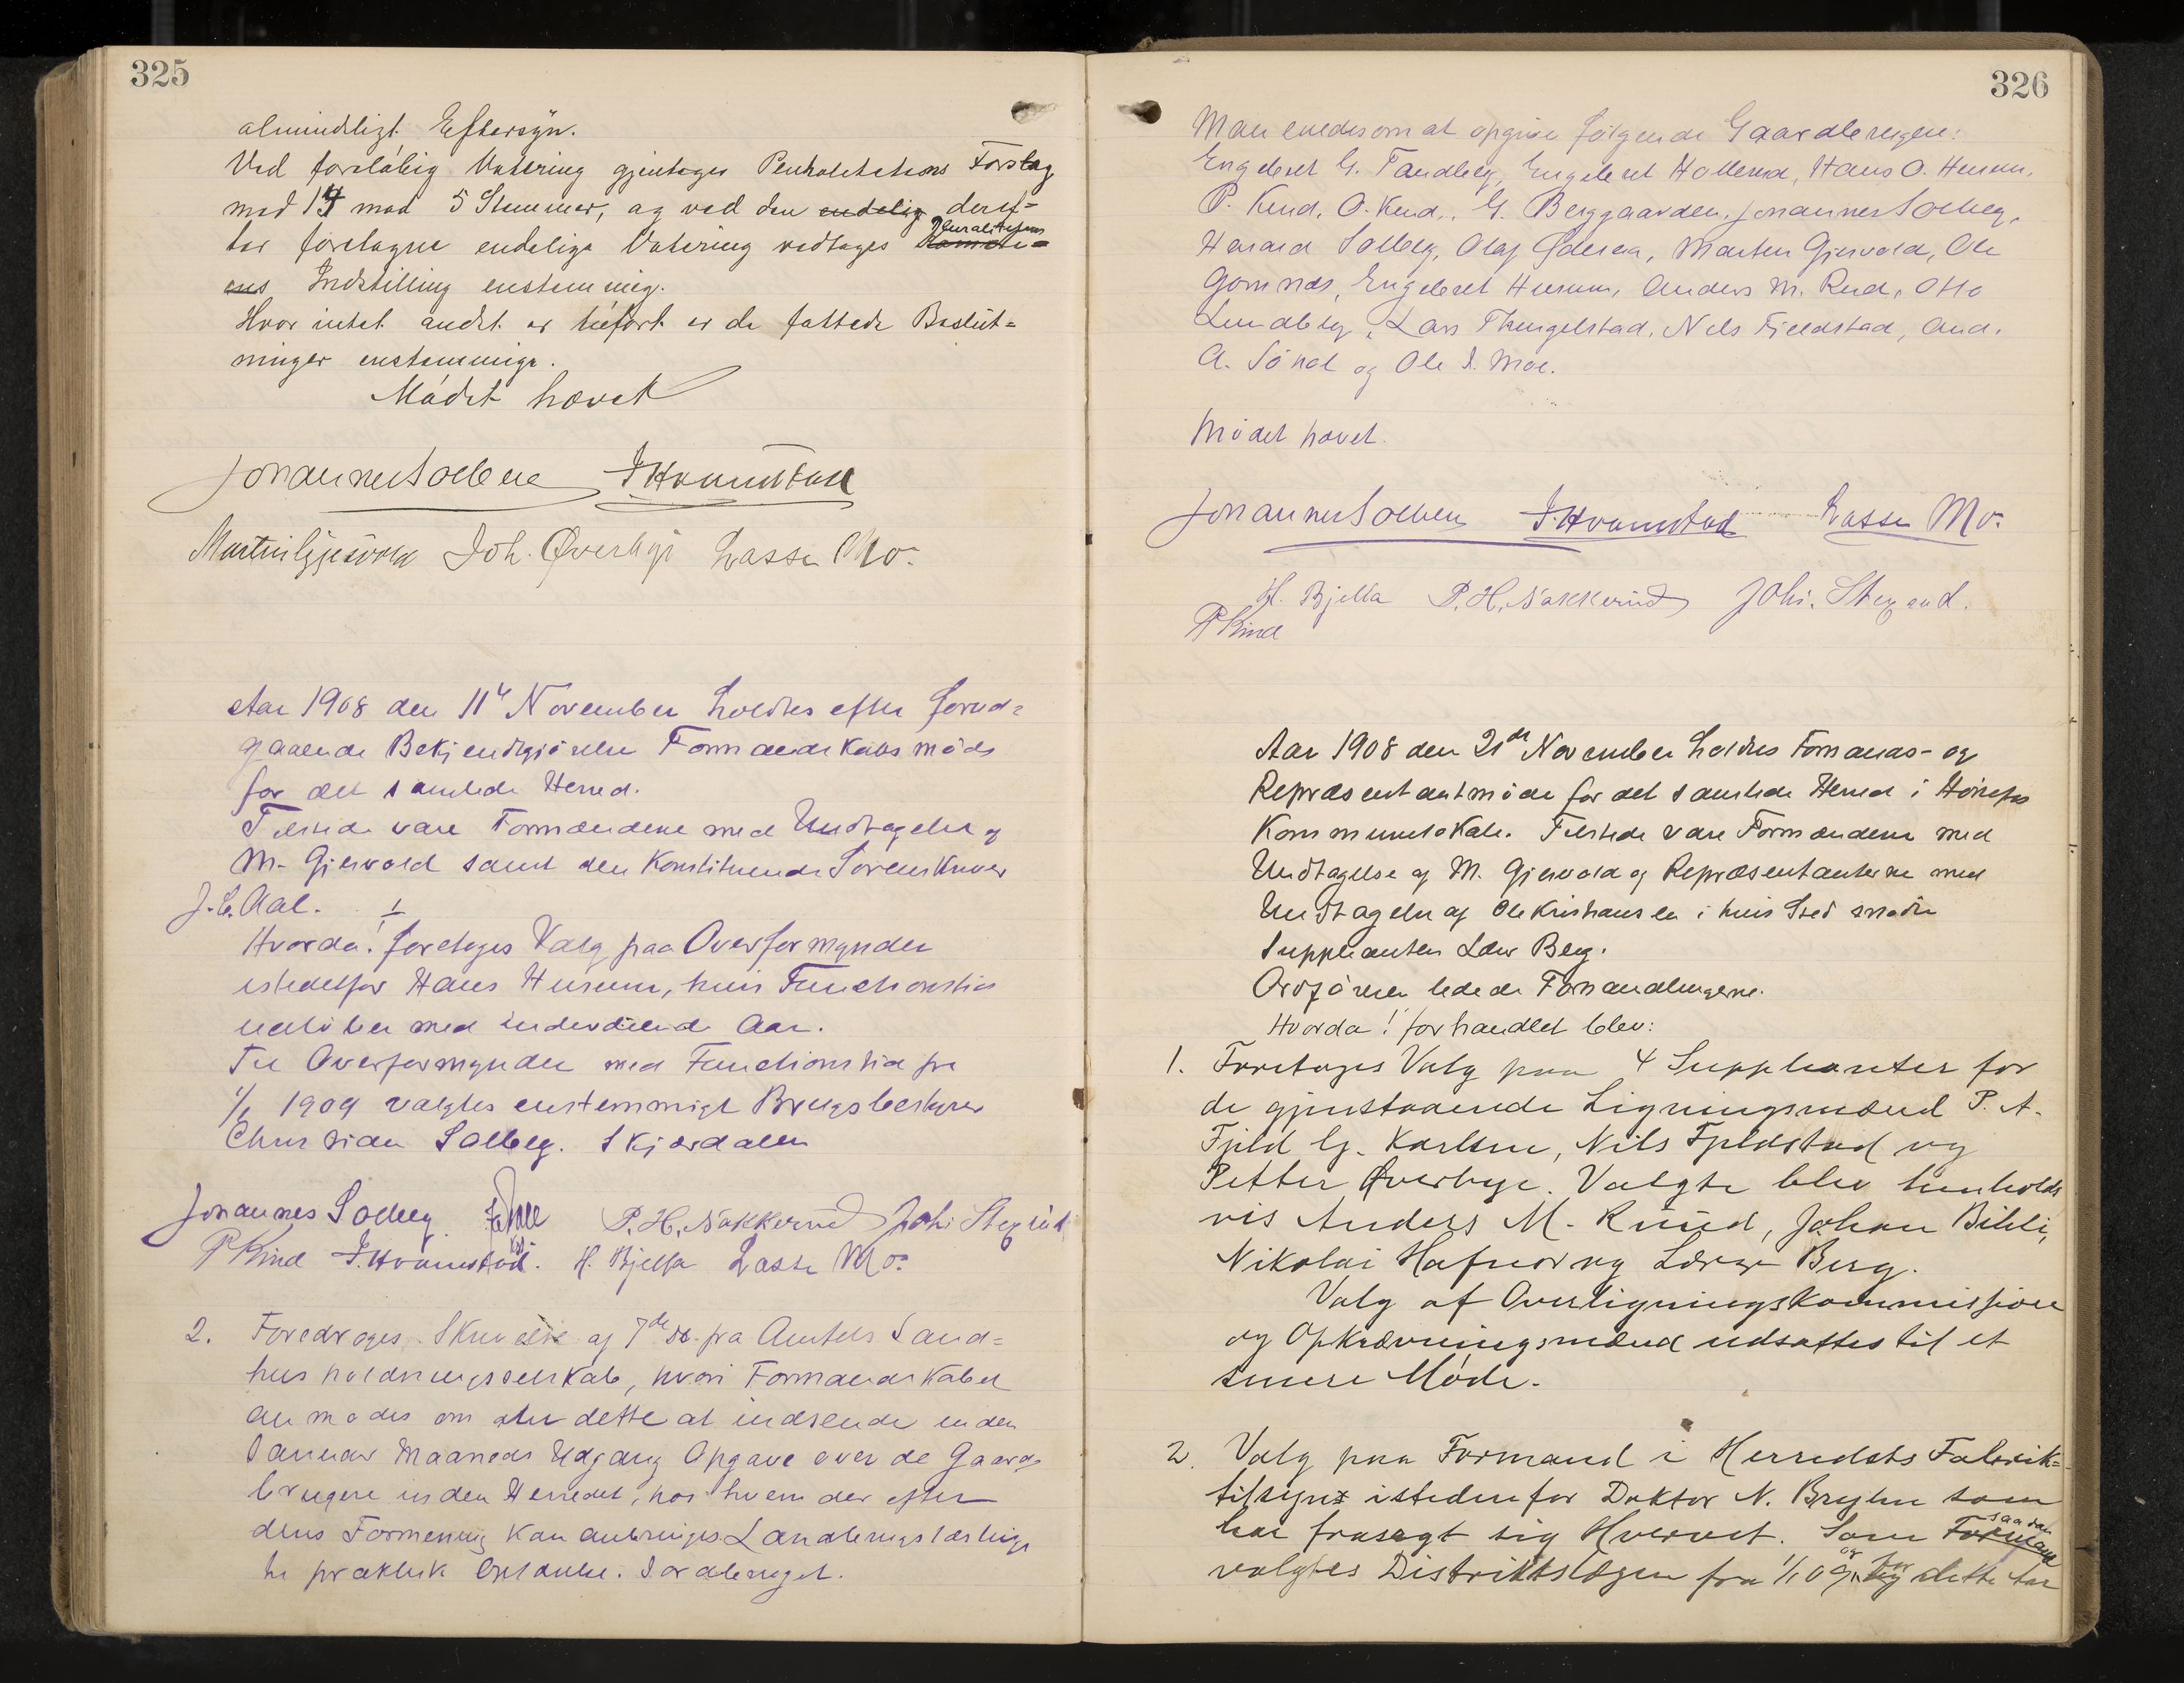 325
almindeligt Eftersyn.
Ved foreløbig Votering gjentoges Forslag
med 14 mod 5 Stemmer, og ved den endelig deref-
ter foretagne endelige Votering vedtages Pluralitetens Komite-
ens Indstilling enstemmig.
Hvor intet andet er tilført er de fattede Beslut-
ninger enstemmige.
Mødet hævet
Johannes Solberg I. Hvamstad
Martin Gjesvold Joh. Øverbye Lasse Mo.
Aar 1908 den 11te November holdtes efter forud-
gaaende Bekjendtgjørelse Formandskabsmøde
for det samlede Herred.
Tilstede vare Formændene med Undtagelse af
M. Gjesvold samt den Konstituerede Sorenskriver
J. C. Aal.
1
Hvorda! foretoges Valg paa Overformynder
istedetfor Hans Hurum, hvis Functionstid
udløber med indeværende Aar.
Til Overformynder med Functionstid fra
1/1 1909 valgtes enstemmigt Brugsbestyrer
Christian Solberg. Skjærdalen
Johannes Solberg P. H. Nakkerud Joh. Stegrud
P Kind I. Hvamstad. H. Bjella Lasse Mo.
2. Foredroges Skrivelse af 7de ds. fra Amtets Land-
husholdningsselskab, hvori Formandskabet
anmodes om dette at indsende inden
Januar Maaneds Udgang Opgave over de Gaard-
brugere inden Herredet, hos hvem der efter
dens Formening kan anbringes Landbrugslærlinge
til praktisk Oplærelse i Jordbruget.
326
Man enedes om at opgive følgende Gaardbrugere:
Engebret G. Tandberg, Engebret Hollerud, Hans O. Hurum,
P. Kind, O. Kind, G. Berggaarden, Johannes Solberg,
Harald Solberg, Olaf Martin Gjesvold, Ole
Gomnæs, Engebret Hurum, Anders M. Rud, Otto
Lundberg, Lars Thengelstad, Nils Fjeldstad, And.
A. Sønd og Ole I. Moe.
Mødet hævet.
Johannes Solberg I. Hvamstad Lasse Mo.
H. Bjella P. H. Nakkerud Joh. Stegrud.
P Kind
Aar 1908 den 21de November holdtes Formands- og
Repræsentantmøde for det samlede Herred i Hønefos
Kommunelokale. Tilstede vare Formændene med
Undtagelse af M. Gjesvold og Repræsentanterne med
Undtagelse af Ole Kristiansen i hvis Sted mødte
Suppleanten Berg.
Ordføreren ledede Forhandlingerne.
Hvorda! forhandlet blev:
1. Foretoges Valg paa 4 Suppleanter for
de gjenstaaende Ligningsmænd P. A.
Fjeld G. Karlsen, Nils Fjeldstad og
Petter Øverbye. Valgte blev henholds
vis Anders M. Ruud, Johan Bihli,
Nikolai Hafnor og Berg.
Valg af Overligningskommission
og Opkrævningsmænd udsattes til et
senere Møde.
2. Valg paa Formand i Herredets Fabrik-
tilsyn istedenfor Doktor N. Bryhn som
har frasagt sig Hvervet. Som saadan Formand
valgtes Distriktslægen fra 1/1 09 og for dette Aar